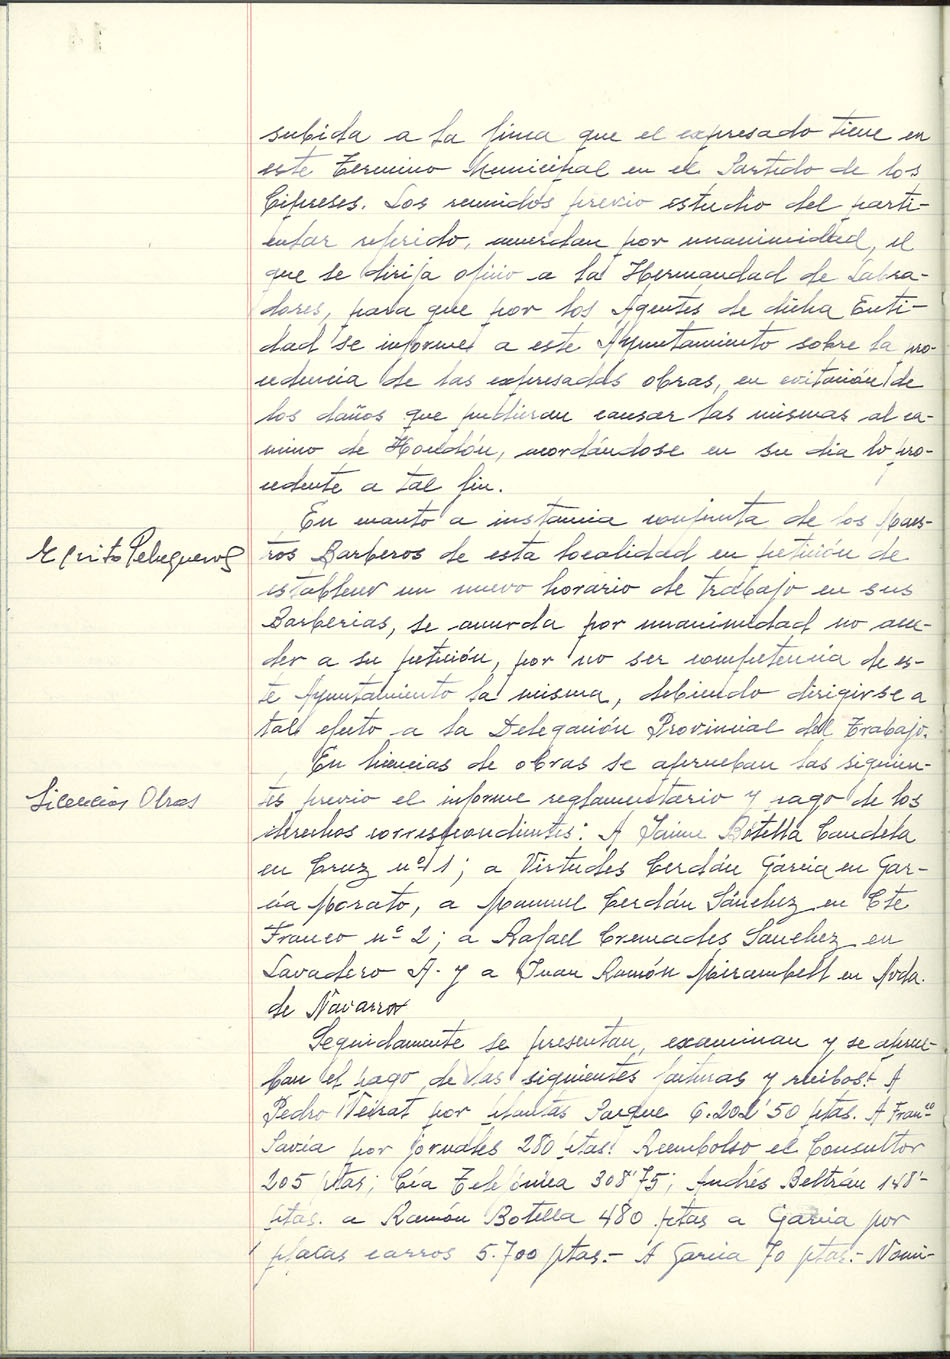 subida a la finca que el expresado tiene en
este Termino Municipal en el Partido de los
Cipreses. Los reunidos previo estudio del parti-
cular referido, acuerdan por unanimidad, el
que se dirija oficio a la Hermandad de Labra-
dores, para que por los Agentes de dicha Enti-
dad se informe a este Ayuntamiento sobre la pro-
cedencia de las expresadas obras, en evitación de
los daños que pudieran causar las mismas al ca-
mino de Hondón, acordándose en su dia lo pro-
cedente a tal fin.
Escrito Peluqueros
En cuanto a instancia conjunta de los Maes-
tros Barberos de esta localidad en petición de
establecer un nuevo horario de trabajo en sus
Barberias, se acuerda por unanimidad no acce-
der a su petición, por no ser competencia de es-
te Ayuntamiento la misma, debiendo dirigirse a
tal efecto a la Delegación Provincial del Trabajo.
Licencias Obras
En licencias de obras se aprueban las siguien-
tes previo el informe reglamentario y pago de los
derechos correspondientes: A Jaime Botella Candela
en Cruz nº 11; a Virtudes Cerdán Garcia en Gar-
cia Morato, a Manuel Cerdán Sánchez en Cte
Franco nº 2; a Rafael Cremades Sanchez en
Lavadero A. y a Juan Ramón Mirambell en Avda.
de Navarro
Seguidamente se presentan, examinan y se aprue-
ban el pago de las siguientes facturas y recibos:- A
Pedro Veirat por plantas Parque 6.202'50 ptas. A Franco
Savia por jornales 280 ptas; Reembolso el Consultor
205 ptas; Cía Telefónica 308'75; Andrés Beltrán 148'-
ptas. a Ramón Botella 480 ptas a Garcia por
placas carros 5.700 ptas.- A Garcia 70 ptas.- Nomi-